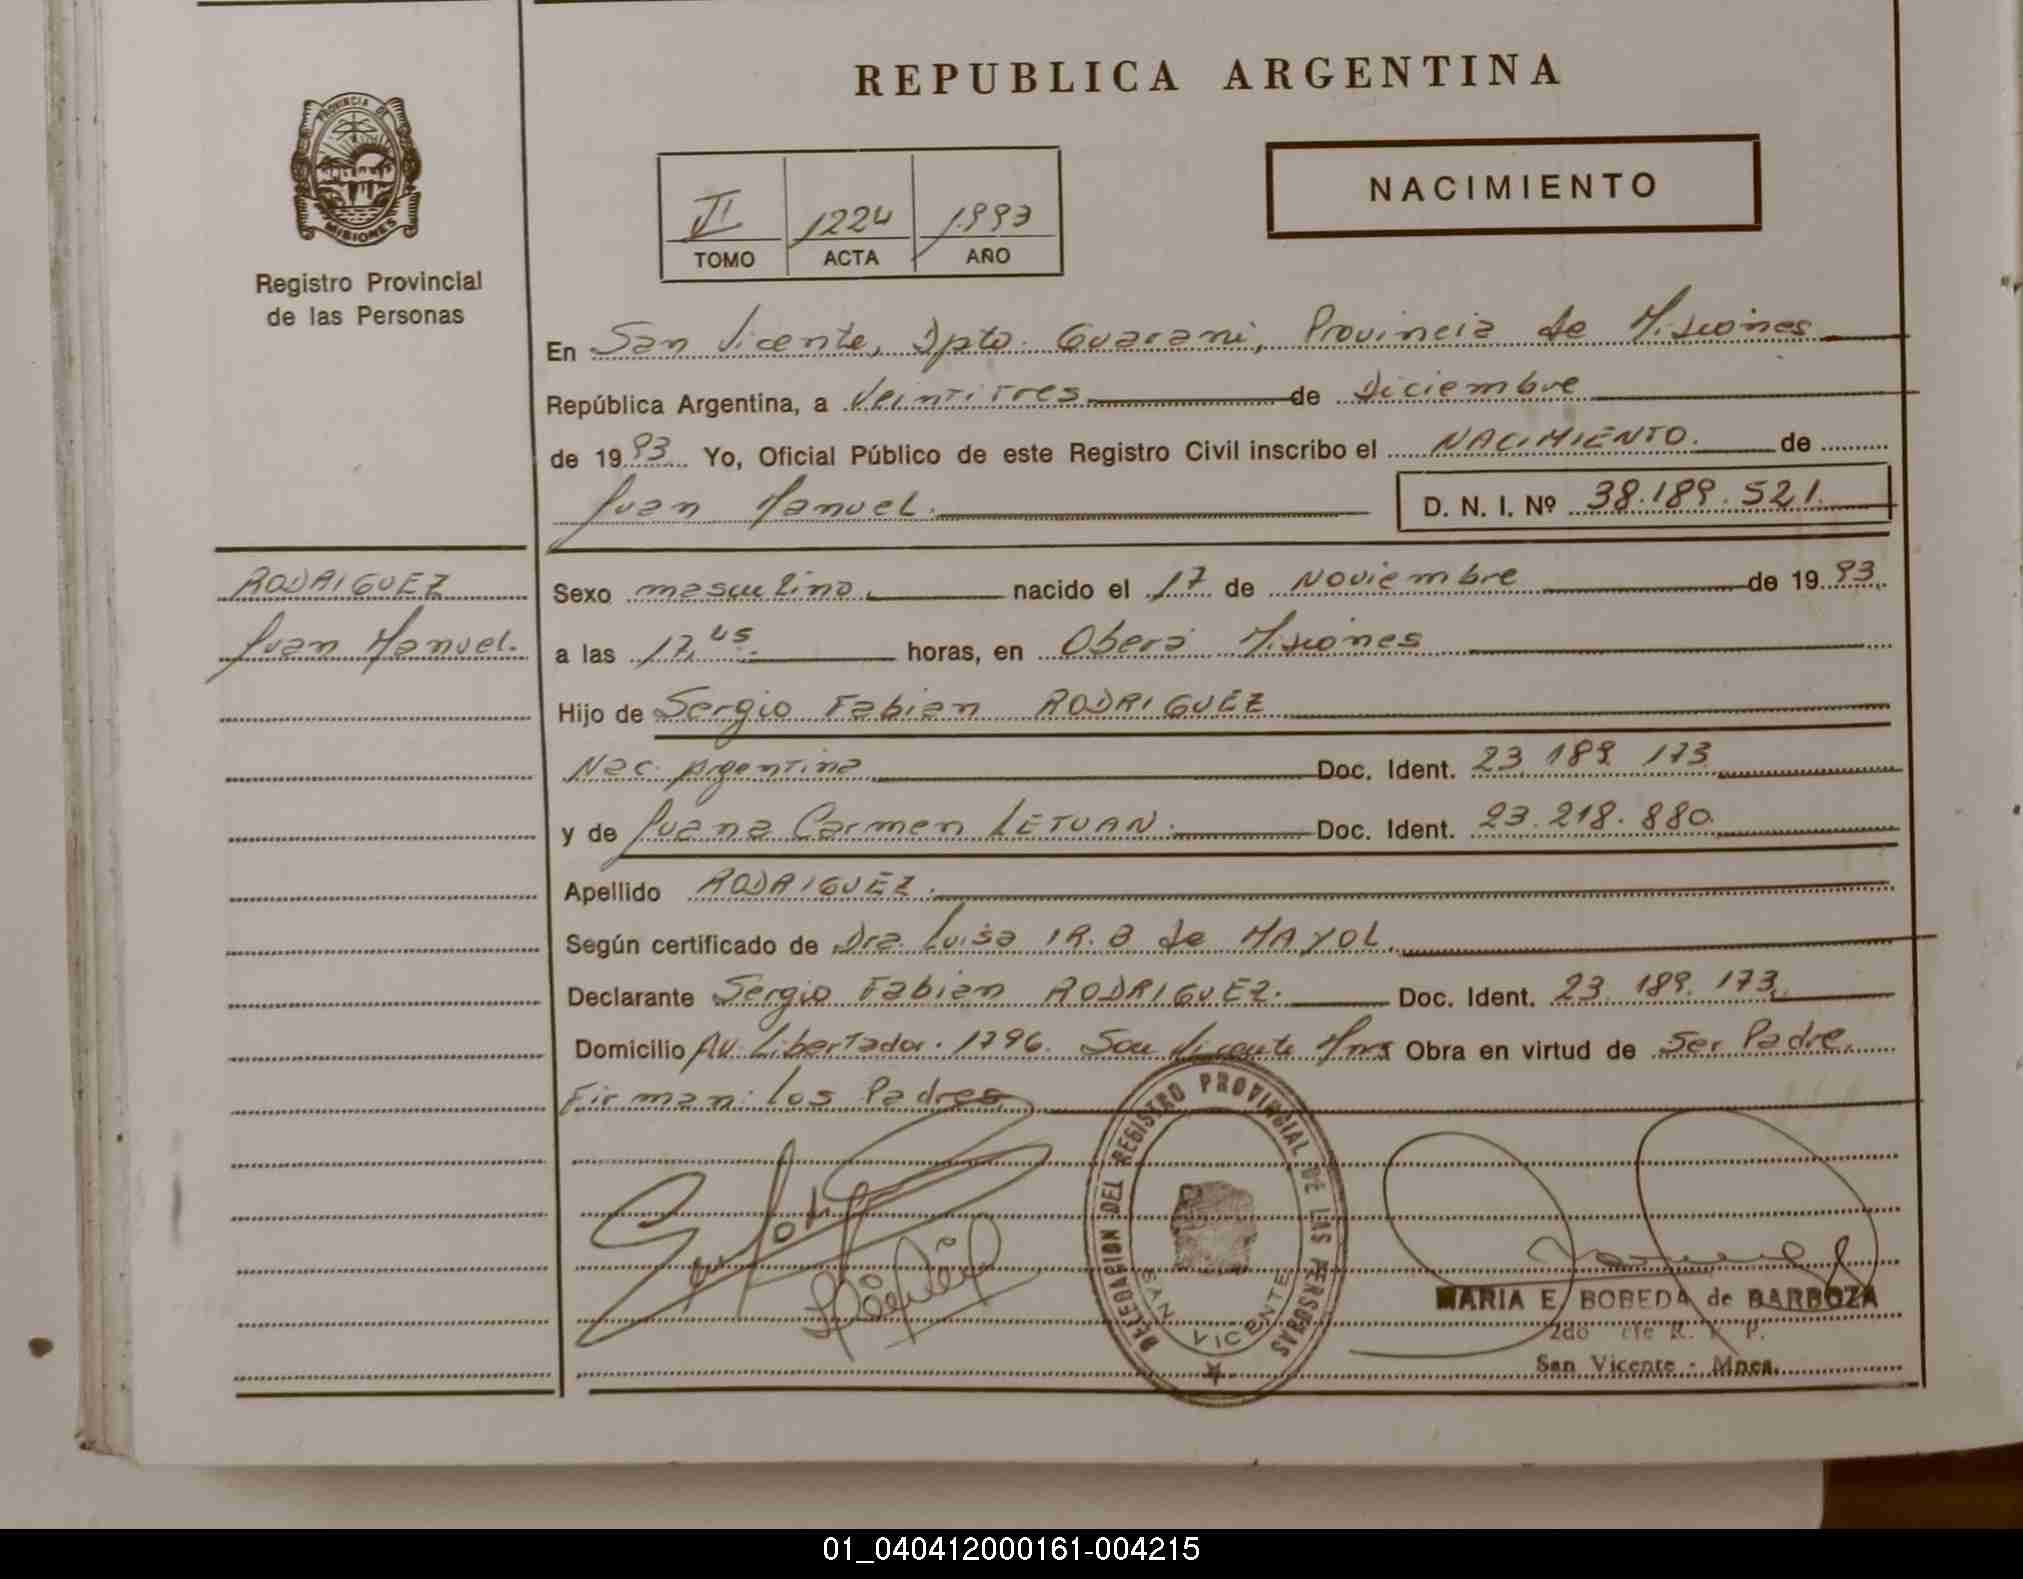 REPUBLICA ARGENTINA
PROVINCIA DE
MISIONES
Registro Provincial
de las Personas
NACIMIENTO
II 1224 1993
TOMO ACTA AÑO
En San Vicente, Dpto. Guarani, Provincia de Misiones
República Argentina, a Veintitres de Diciembre
de 1993 Yo, Oficial Público de este Registro Civil inscribo el NACIMIENTO. de
Juan Manuel. D. N. I. Nº 38.189.521.
RODRIGUEZ
Juan Manuel.
Sexo masculino. nacido el 17 de Noviembre de 1993.
a las 17,45. horas, en Oberá Misiones
Hijo de Sergio Fabian RODRIGUEZ
Nac. Argentina Doc. Ident. 23 189 173
y de Juana Carmen LETUAN. Doc. Ident. 23.218.880.
Apellido RODRIGUEZ.
Según certificado de Dra. Luisa de MAYOL.
Declarante Sergio Fabian RODRIGUEZ. Doc. Ident. 23.189.173.
Domicilio Av. Libertador. 1796. San Vicente Mnes Obra en virtud de Ser Padre.
Firman: los Padres
DELEGACION DEL REGISTRO PROVINCIAL DE LAS PERSONAS
SAN VICENTE
MARIA E. BOBEDA de BARBOZA
2do R. P.
San Vicente - Mnes.
01_040412000161-004215